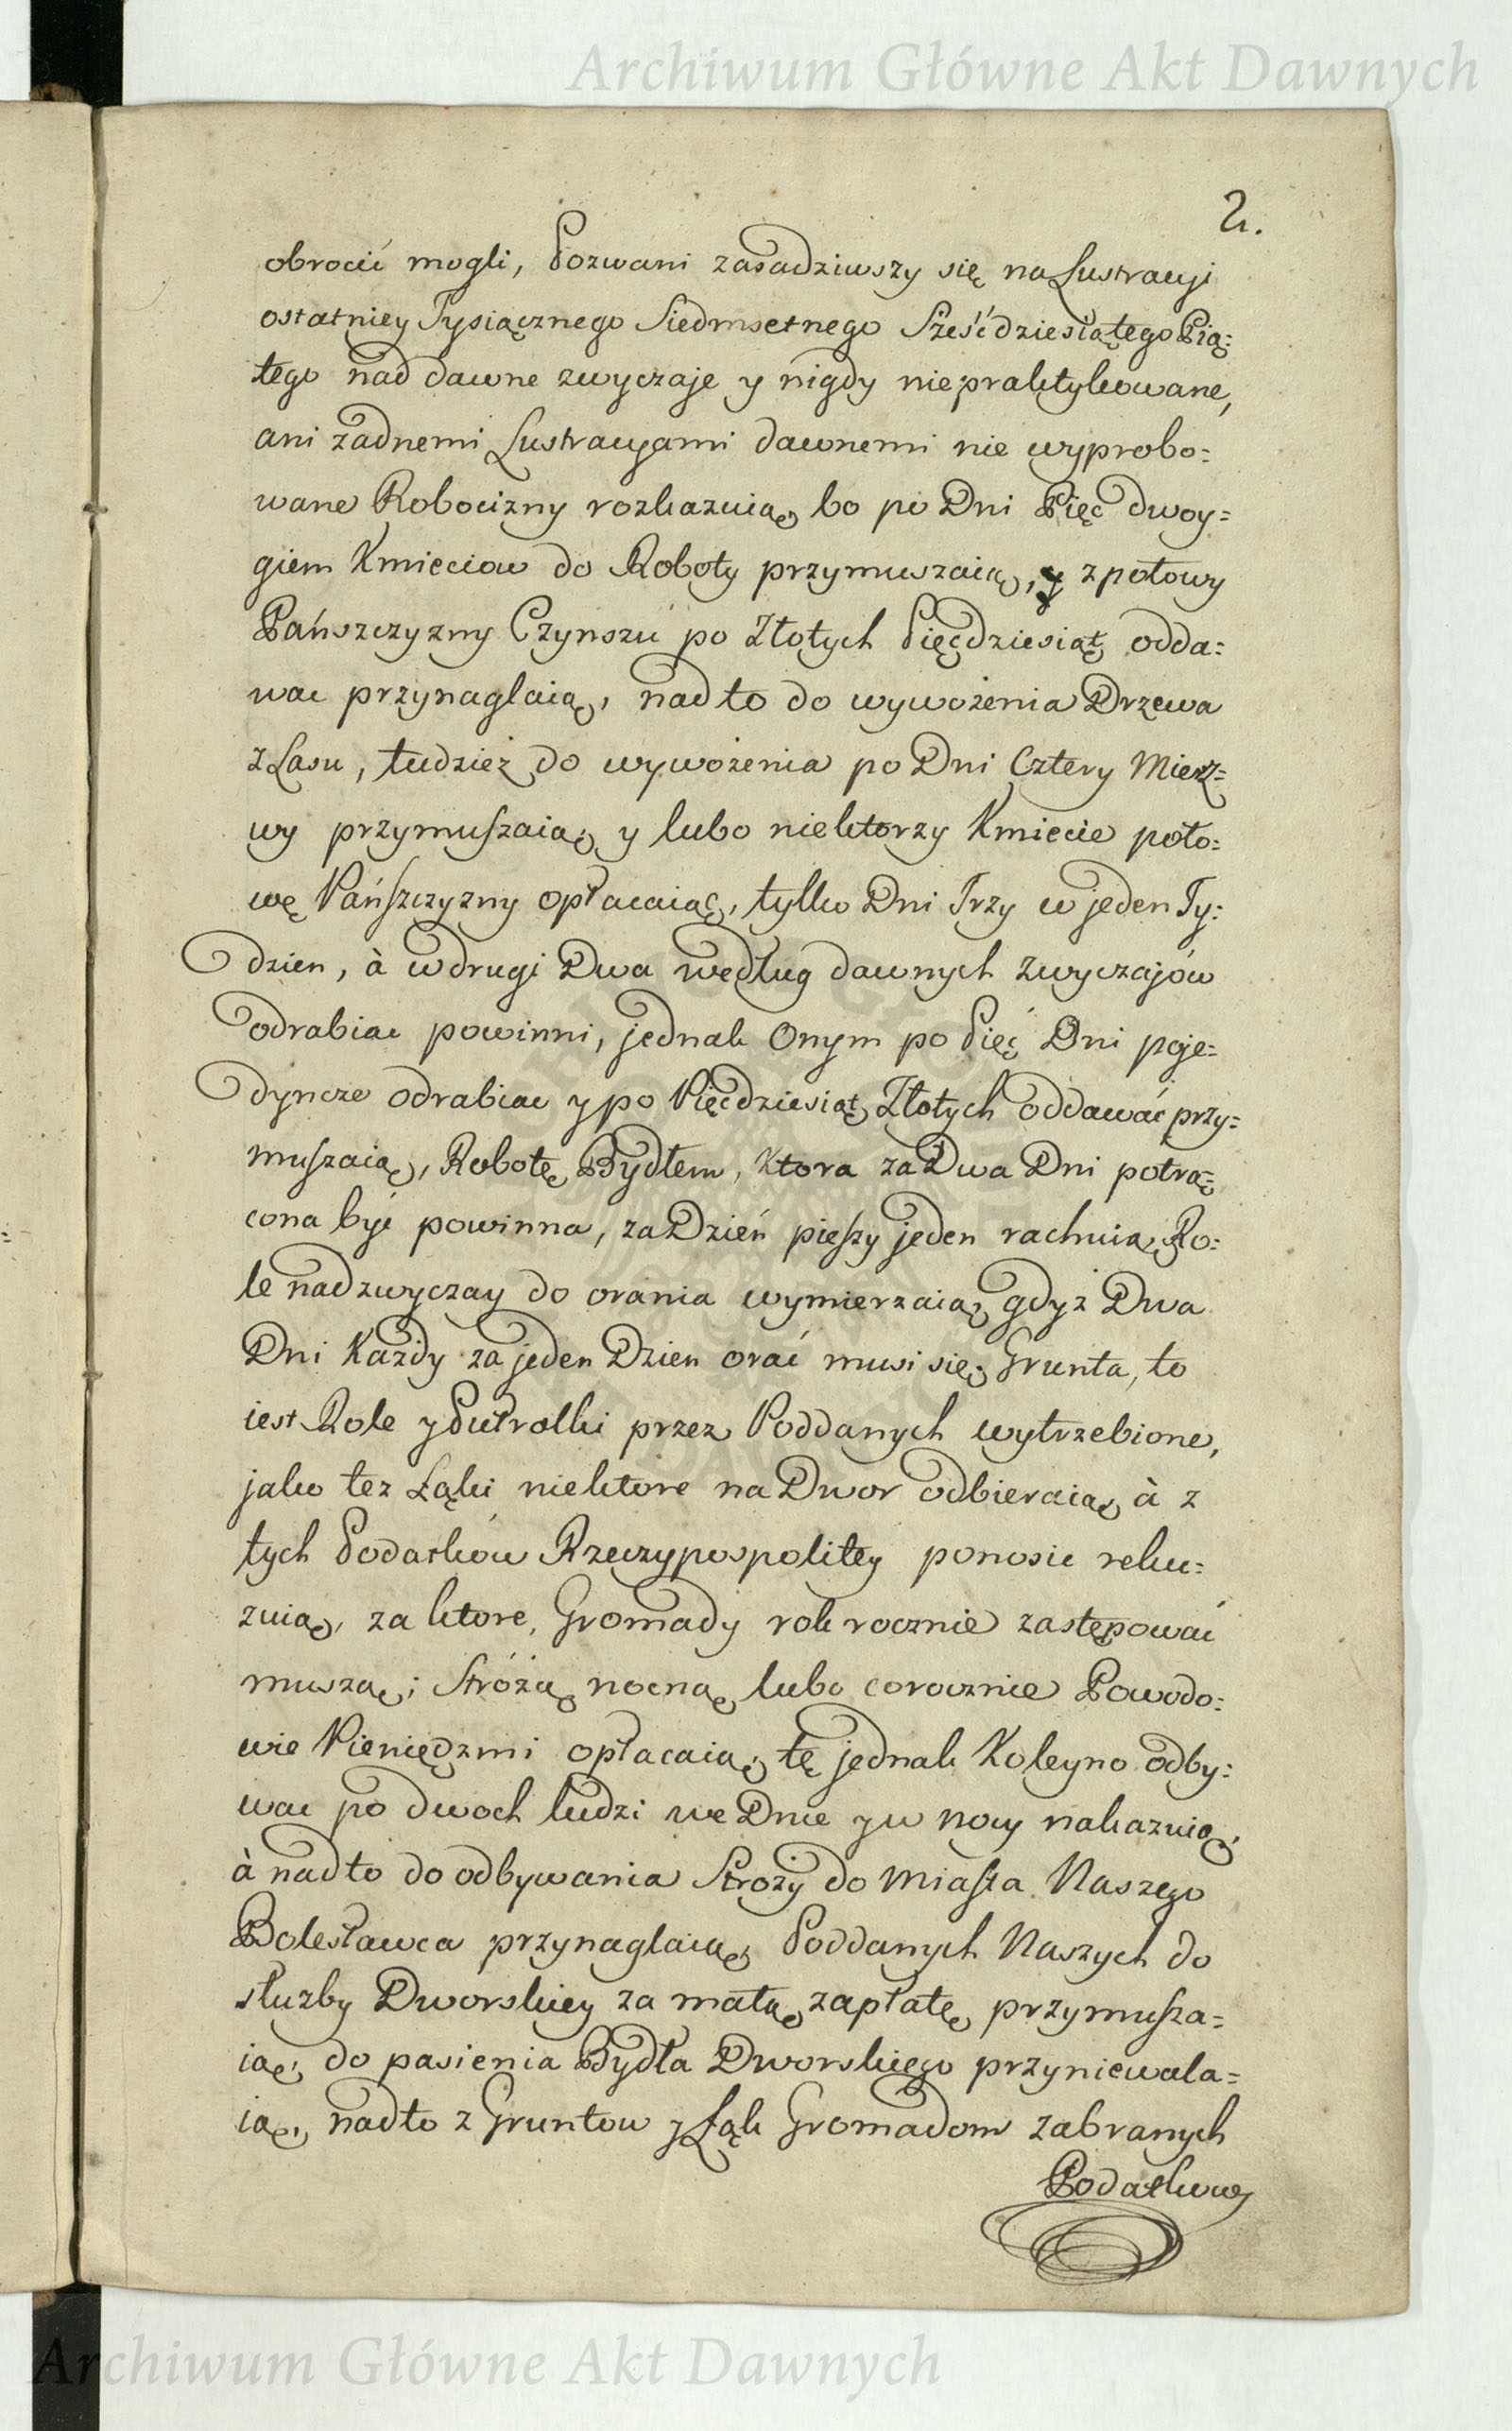 Archiwum Główne Akt Dawnych
2.
obrocić mogli, Pozwani zasadziwszy się na Lustracyi
ostatniey Tysiącznego Siedmsetnego Sześćdziesiątego Pią=
tego nad dawne zwyczaje y nigdy niepraktykowane,
ani żadnemi Lustracyami dawnemi nie wyprobo=
wane Robocizny rozkazuią, bo po Dni Pięć dwoy=
giem Kmieciow do Roboty przymuszaią, y z połowy
Pańszczyzny Czynszu po Złotych Pięcdziesiąt odda=
wac przynaglaią, nadto do wywożenia Drzewa
z Lasu, tudzież do wywożenia po Dni Cztery Mierz=
wy przymuszaią, y lubo niektorzy Kmiecie poło=
wę Pańszczyzny opłacaiąc, tylko Dni Trzy w jeden Ty=
dzien, à w drugi Dwa według dawnych zwyczajów
odrabiac powinni, jednak Onym po Pięć Dni poje=
dyncze odrabiac y po Pięcdziesiąt Złotych oddawać przy=
muszaią, Robotę Bydłem, ktora za Dwa Dni potrą=
cona być powinna, za Dzień pieszy jeden rachuią, Ro=
le nadzwyczay do orania wymierzaią, gdyż Dwa
Dni Każdy za jeden Dzien orać musi się; Grunta, to
iest Role y Pułrolki przez Poddanych wytrzebione,
jako tez Łąki niektore na Dwor odbieraią, à z
tych Podatków Rzeczypospolitey ponosic reku=
zuią, za ktore, Gromady rok rocznie zastępować
muszą; Stróżą nocną lubo corocznie Powodo=
wie Pieniędzmi opłacaią, tę jednak Koleyno odby=
wac po dwoch ludzi we Dnie y w nocy nakazuią,
à nadto do odbywania Stroży do Miasta Naszego
Bolesławca przynaglaią, Poddanych Naszych do
służby Dworskiey za małą zapłatę przymusza=
ią, do pasienia Bydła Dworskiego przyniewala=
ią, nadto z Gruntow y Łąk Gromadom zabranych
Podatkow
Archiwum Główne Akt Dawnych